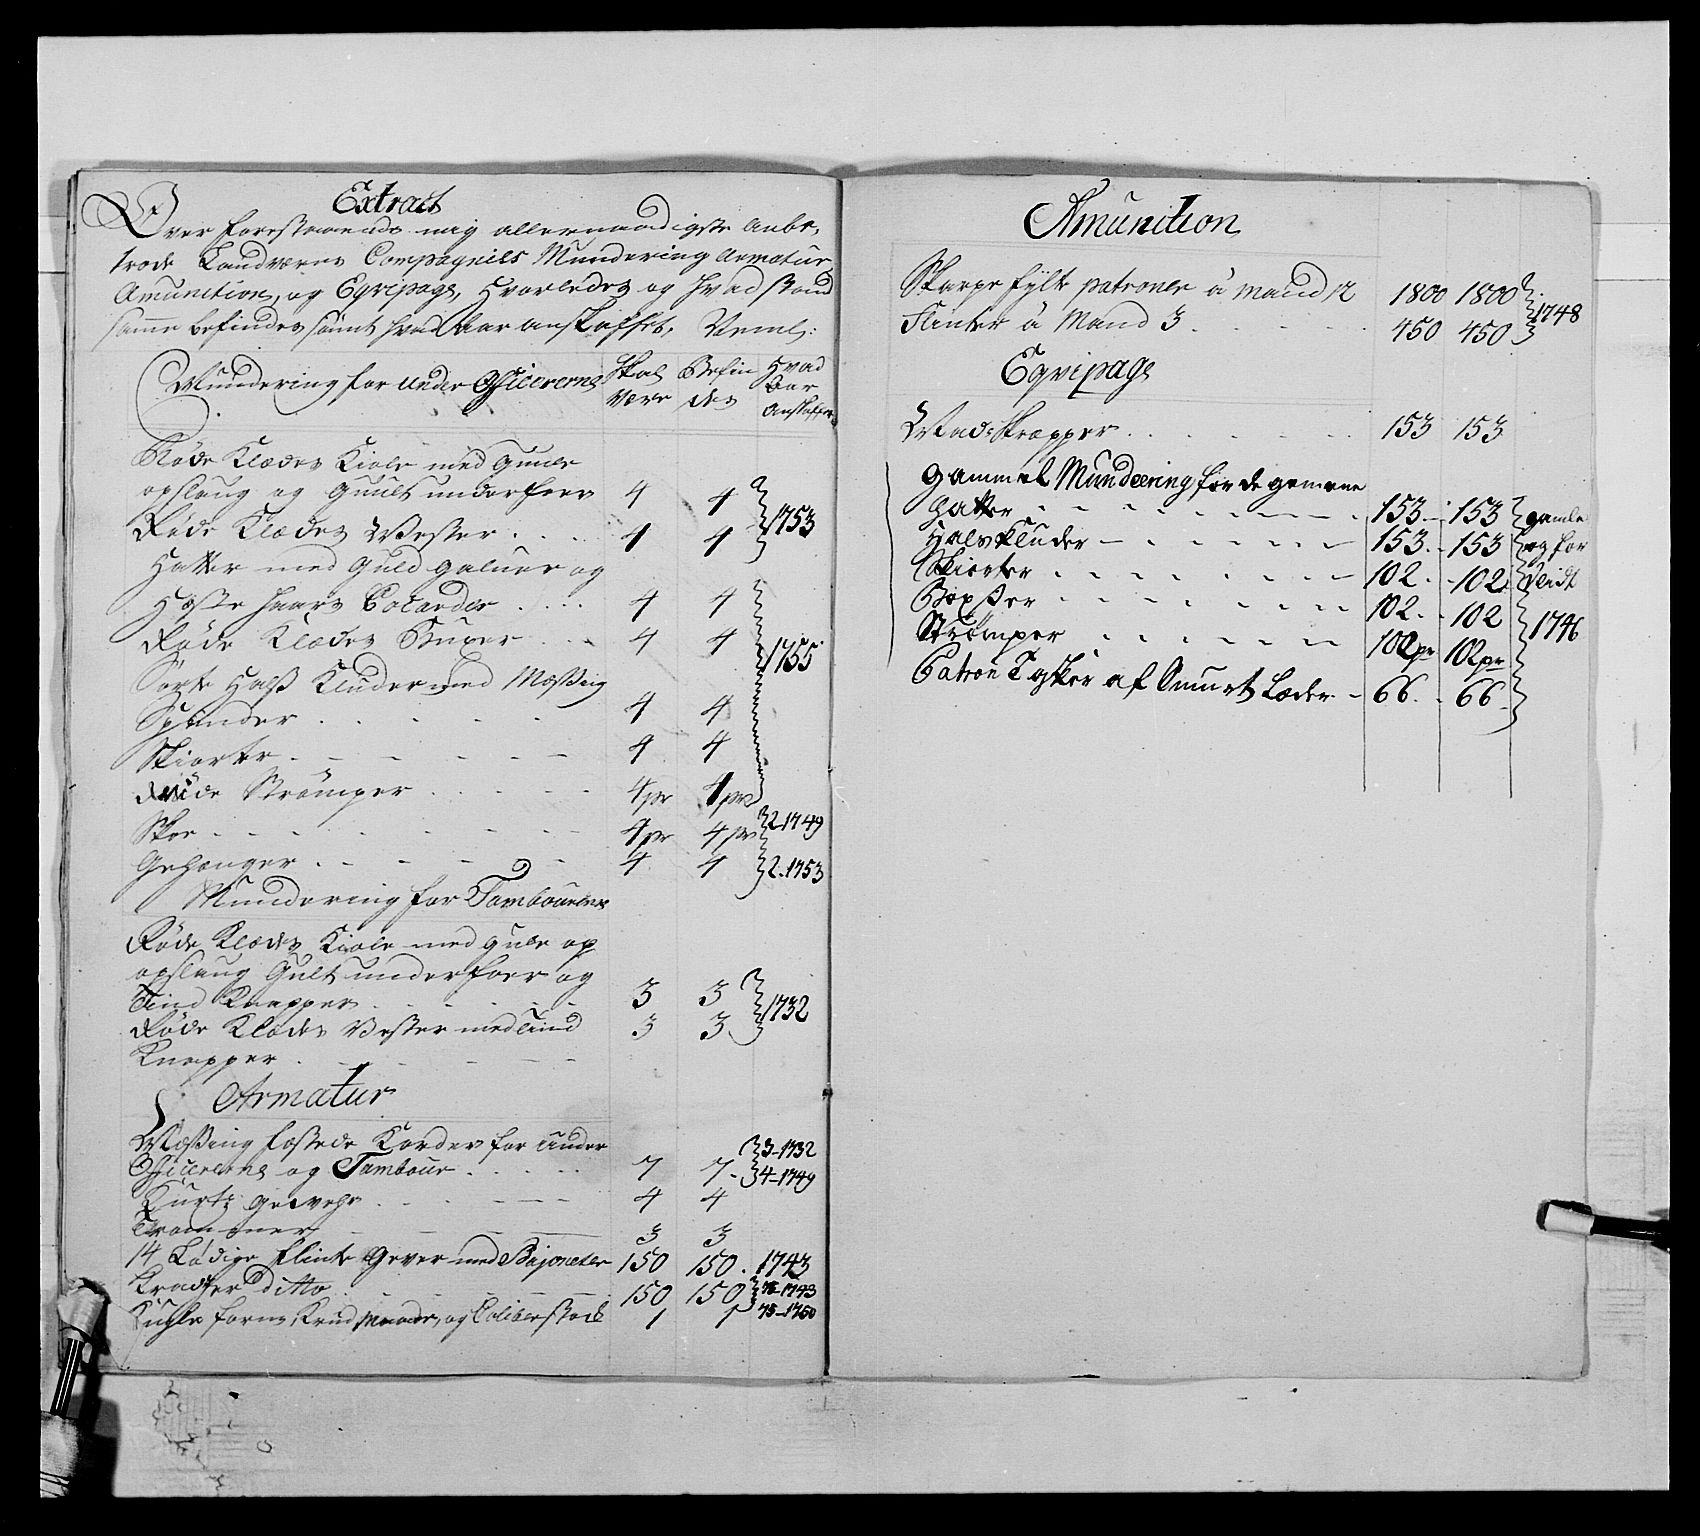 Extract
Over forestaaende mig allernaadigste Anbe,
trode Landværns Compagnies Mundering Armatur
Amunition, og Eqvipage, hvorledes og hvad stand
samme befindes samt hvad Aar anskaffet, Neml:
Mundering for Under Officererne Skal være Befindes Hvad Aar Anskaffet
Røde Klædes Kiole med Guule
opslaug og Guult underfoer 4 4 1753
Røde Klædes Vester 4 4
Hatter med Guld galuner og
Heste haars Cocarder 4 4
Røde Klædes Buxer 4 4 1755
Sorte Halß Kluder med Meßing
Spender 4 4
Skiorter 4 4
Røde Strømper 4pr 4pr
Skoe 4pr 4pr 2-1749
Gehænger 4 4 2-1753
Mundering for Tambourerne
Røde Klædes Kiole med gule op
opslaug Gult underfoer og
Tind Knapper 3 3 1732
Røde Klædes Vester med Tind 3 3
Knapper
Armatur
Meßing fæstede Korder for Under 3-1732
Officererne og Tambour 7 7 4-1749
Kurtz gewehr 4 4
Trommer 3 3
14 Lødige flinte Gever med Bajoneter 150 150 1743
Kradser Ditto 150 150 75-1743
Kugle form, Krud Maader, og Caliberstok 1 1 75-1750
Amunition
Skarpe fylte patroner á Mand 12 1800 1800 1748
Flinter á Mand 3 450 450
Eqvipage
Mad-Skrepper 153 153
Gammel Mundeering for de gemeene
Hatter 153 153 gamle
Halskluder 153 153 og for
Skiorter 102 102 slidt
Boxser 102 102
Strømper 102pr 102pr 1746
Patron Tasker af Smurt Læder 66 66